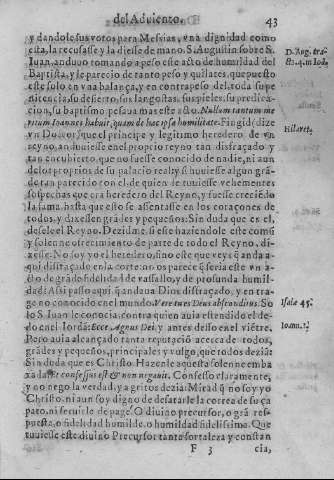 del Aduiento. 43
y dandole sus votos para Messias, vna dignidad como
esta, la recusasse y la diesse de mano. S. Augustin sobre S.
Iuan, anduuo tomando a peso este acto de humildad del
Baptista, y le parecio de tanto peso y quilates, que puesto
este solo en vna balança, y en contrapeso del, toda su pe
nitencia, su desierto, sus langostas, sus pieles, su predica-
cion, su baptismo, pesaua mas este acto. Nullum tantum me
ritum Ioannes habuit, quam de hac ipsa humilitate. Fingid (dize
vn Doctor) que el principe y legitimo heredero de vn
reyno, anduuiesse en el proprio reyno tan disfraçado y
tan encubierto, que no fuesse conocido de nadie, ni aun
de los proprios de su palacio real: y si huuiesse algun grã-
de tan parecido con el, de quien se tuuiesse vehementes
sospechas que era heredero del Reyno, y fuesse creciẽdo
la fama, hasta que esto se assentasse en los coraçones de
todos, y dixessen grãdes y pequeños: Sin duda que es el,
desele el Reyno. Dezidme, si este haziendole este comũ
y solenne ofrecimiento de parte de todo el Reyno, di-
xesse: No soy yo el heredero, sino este que veys q̃ anda a-
qui disfraçado en la corte: no os parece q̃ seria este vn a-
cto de grãde fidelidad de vassallo, y de profunda humil-
dad? Assi passo aqui: q̃ andaua Dios disfraçado, y en tra-
ge no conocido en el mundo. Vere tu es Deus absconditus. So
lo S. Iuan le conocia, contra quien auia estendido el de-
do en el Iordã: Ecce Agnus Dei, y antes desso en el viẽtre.
Pero auia alcançado tanta reputaciõ acerca de todos,
grãdes y pequeños, principales y vulgo, que todos dezia:
Sin duda que es Christo. Hazenle aquesta solenne emba
xada: Et confessus est & non negauit. Confesso claramente,
y no nego la verdad, y a gritos dezia: Mirad q̃ no soy yo
Christo, ni aun soy digno de desatarle la correa de su ça
pato, ni seruirle de page. O diuino precursor, o grã res-
puesta, o fidelidad humilde, o humildad fidelissima. Que
tuuiesse este diuino Precursor tanta fortaleza y constan
F 3 cia,
D. Aug. tra-
cta. 4. in Ioã.
Hilaret.
Isaiæ 45.
Ioann. 1.